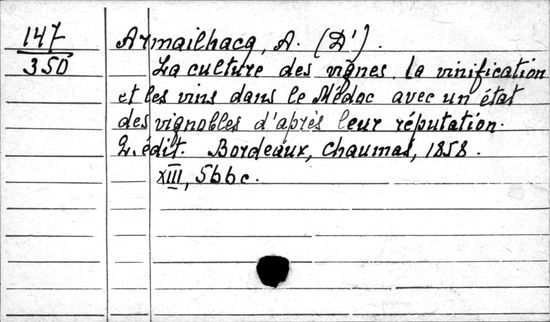 147 Armailhacq, A. (D').
350 La culture des vignes, la vinification
et les vins dans le Médoc avec un état
des vignobles d'après leur réputation.
2. édit. Bordeaux, Chaumas, 1858.
XIII, 566 c.